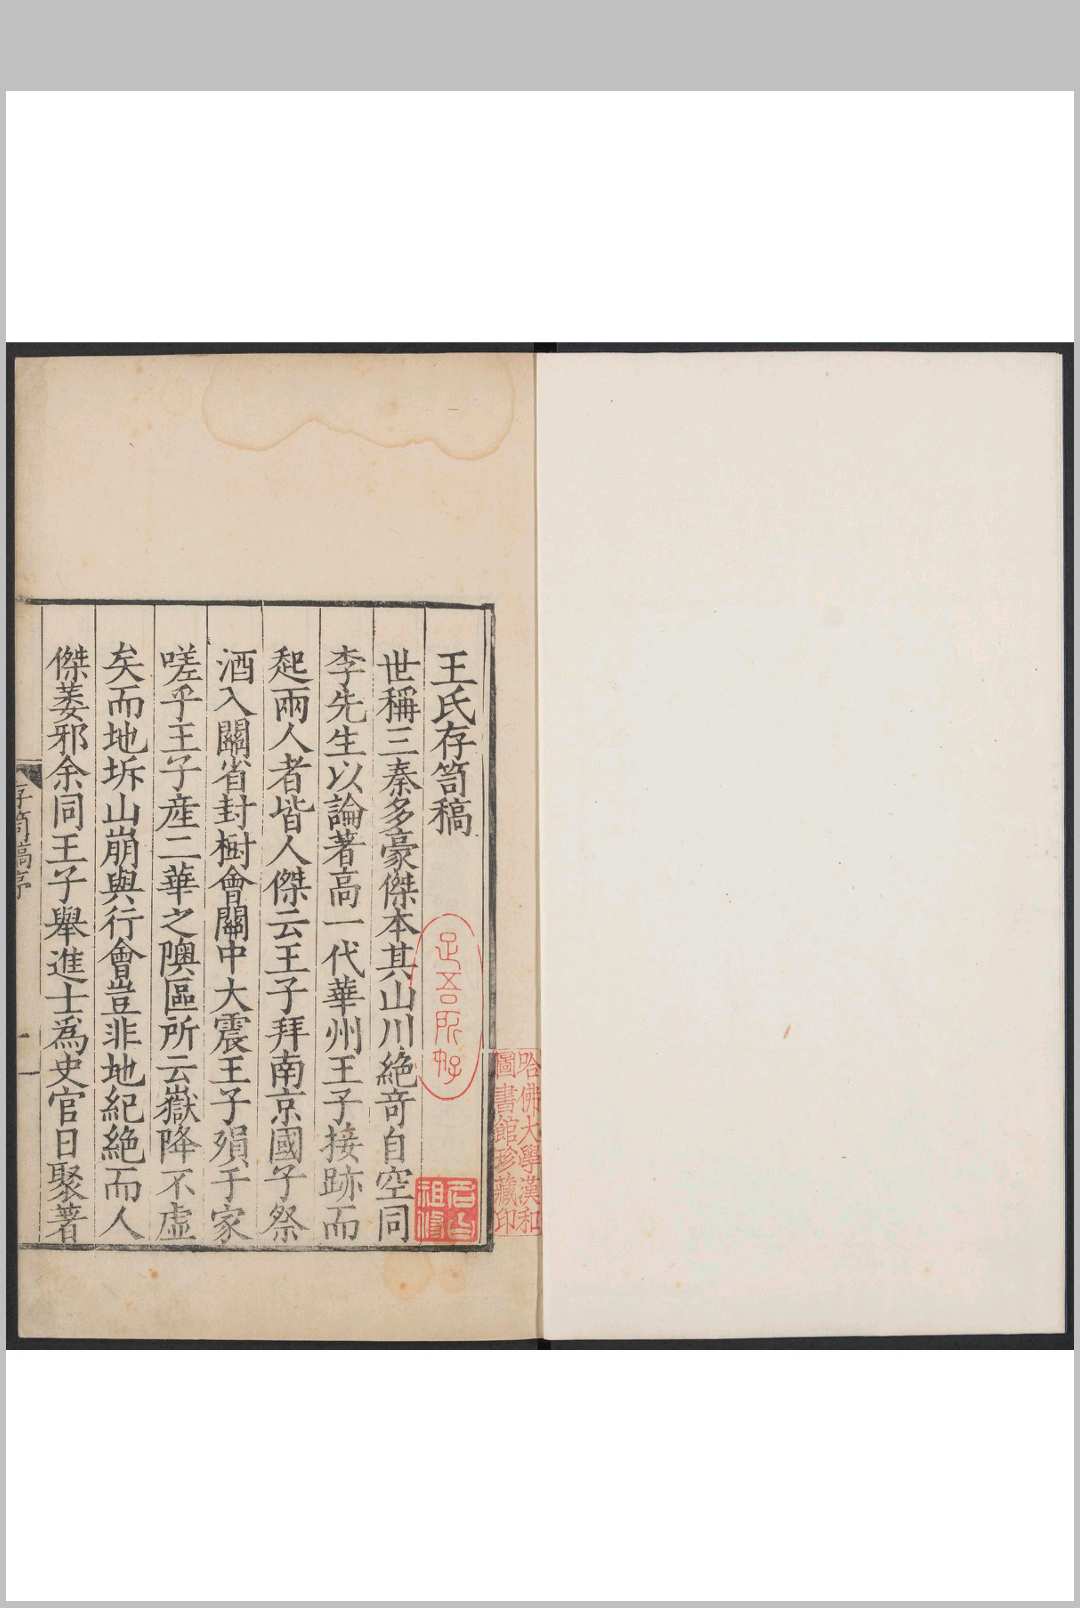 王氏存笥稿
世稱三秦多豪傑本其山川絶竒自空同
李先生以論著高一代華州王子接跡而
起兩人者皆人傑云王子拜南京國子祭
酒入關省封樹會關中大震王子殞于家
嗟乎王子産二華之隩區所云嶽降不虛
矣而地坼山崩與行會豈非地紀絶而人
傑萎邪余同王子舉進士爲史官日聚著
存笥稿序
一
是吾所好
哈佛大學漢和
圖書館珍藏印